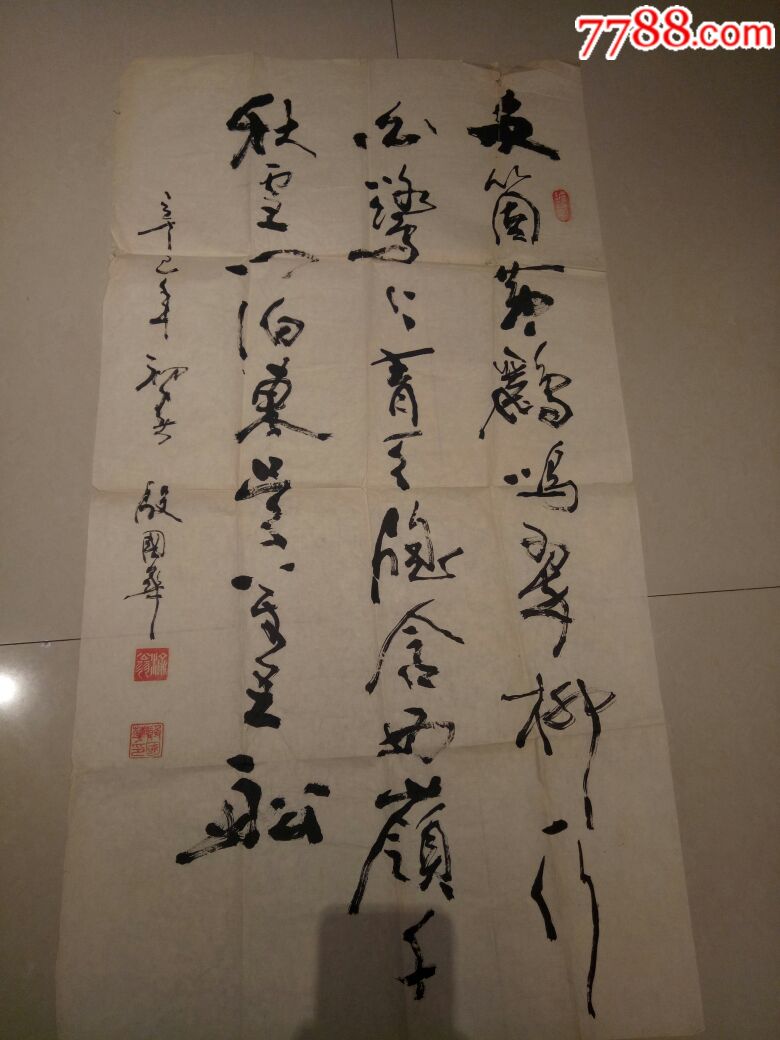 7788.com
兩箇黄鸝鳴翠柳一行
白鷺上青天牕含西嶺千
秋雪門泊東吳萬里船
辛巳年初春 殷國華